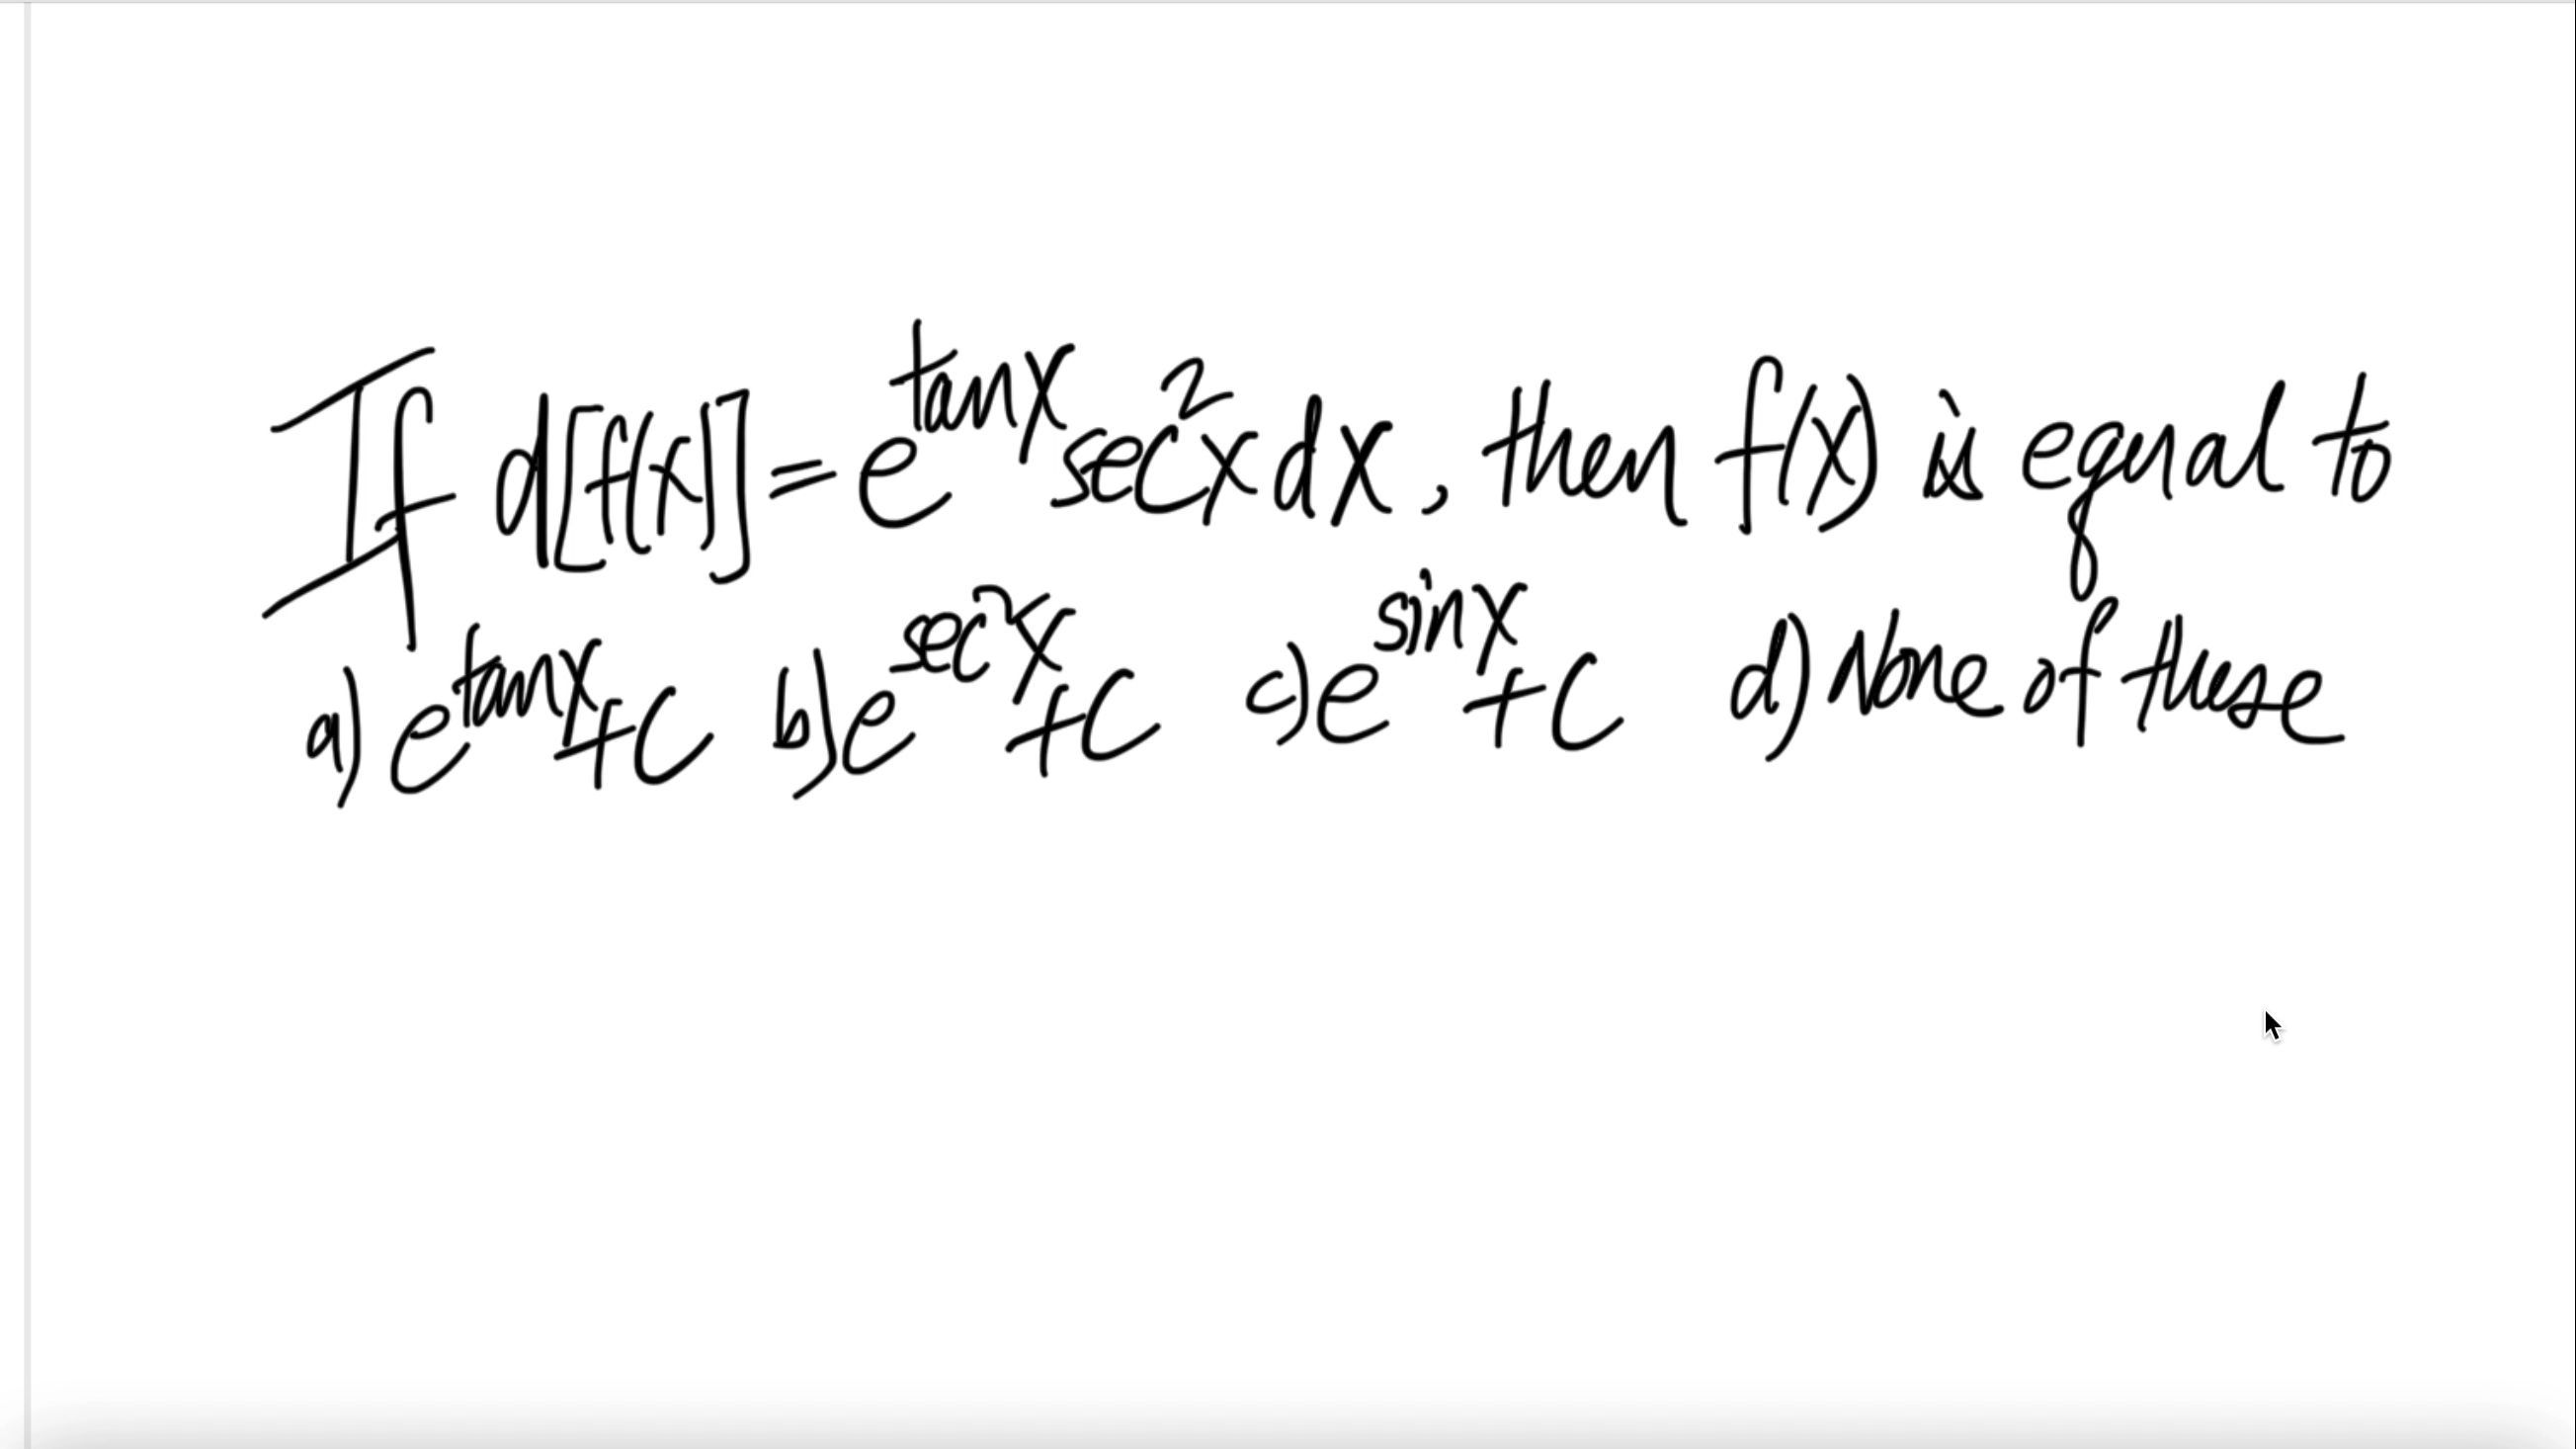 If d[f(x)] = e^{tanx} sec²x dx, then f(x) is equal to
a) e^{tanx} + C b) e^{sec²x} + C c) e^{sinx} + C d) None of these